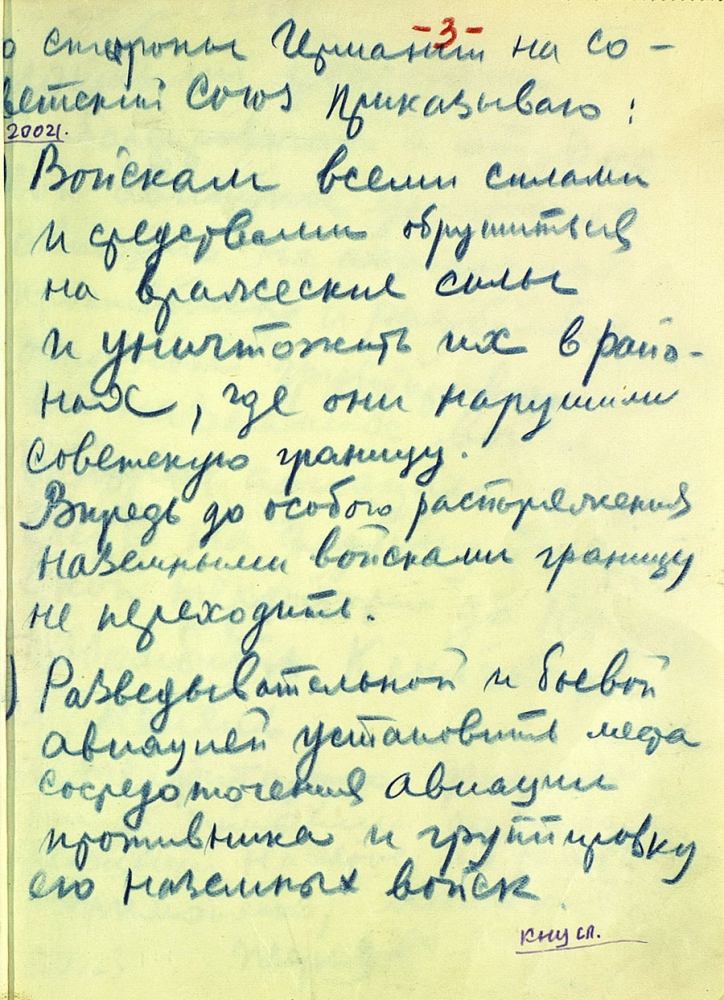 -3-
о стороны Германии на Со-
ветский Союз приказываю:
20021.
) Войскам всеми силами
и средствами обрушиться
на вражеские силы
и уничтожить их в райо-
нах, где они нарушили
советскую границу.
Впредь до особого распоряжения
наземными войсками границу
не переходить.
) Разведывательной и боевой
авиацией установить места
сосредоточения авиации
противника и группировку
его наземных войск